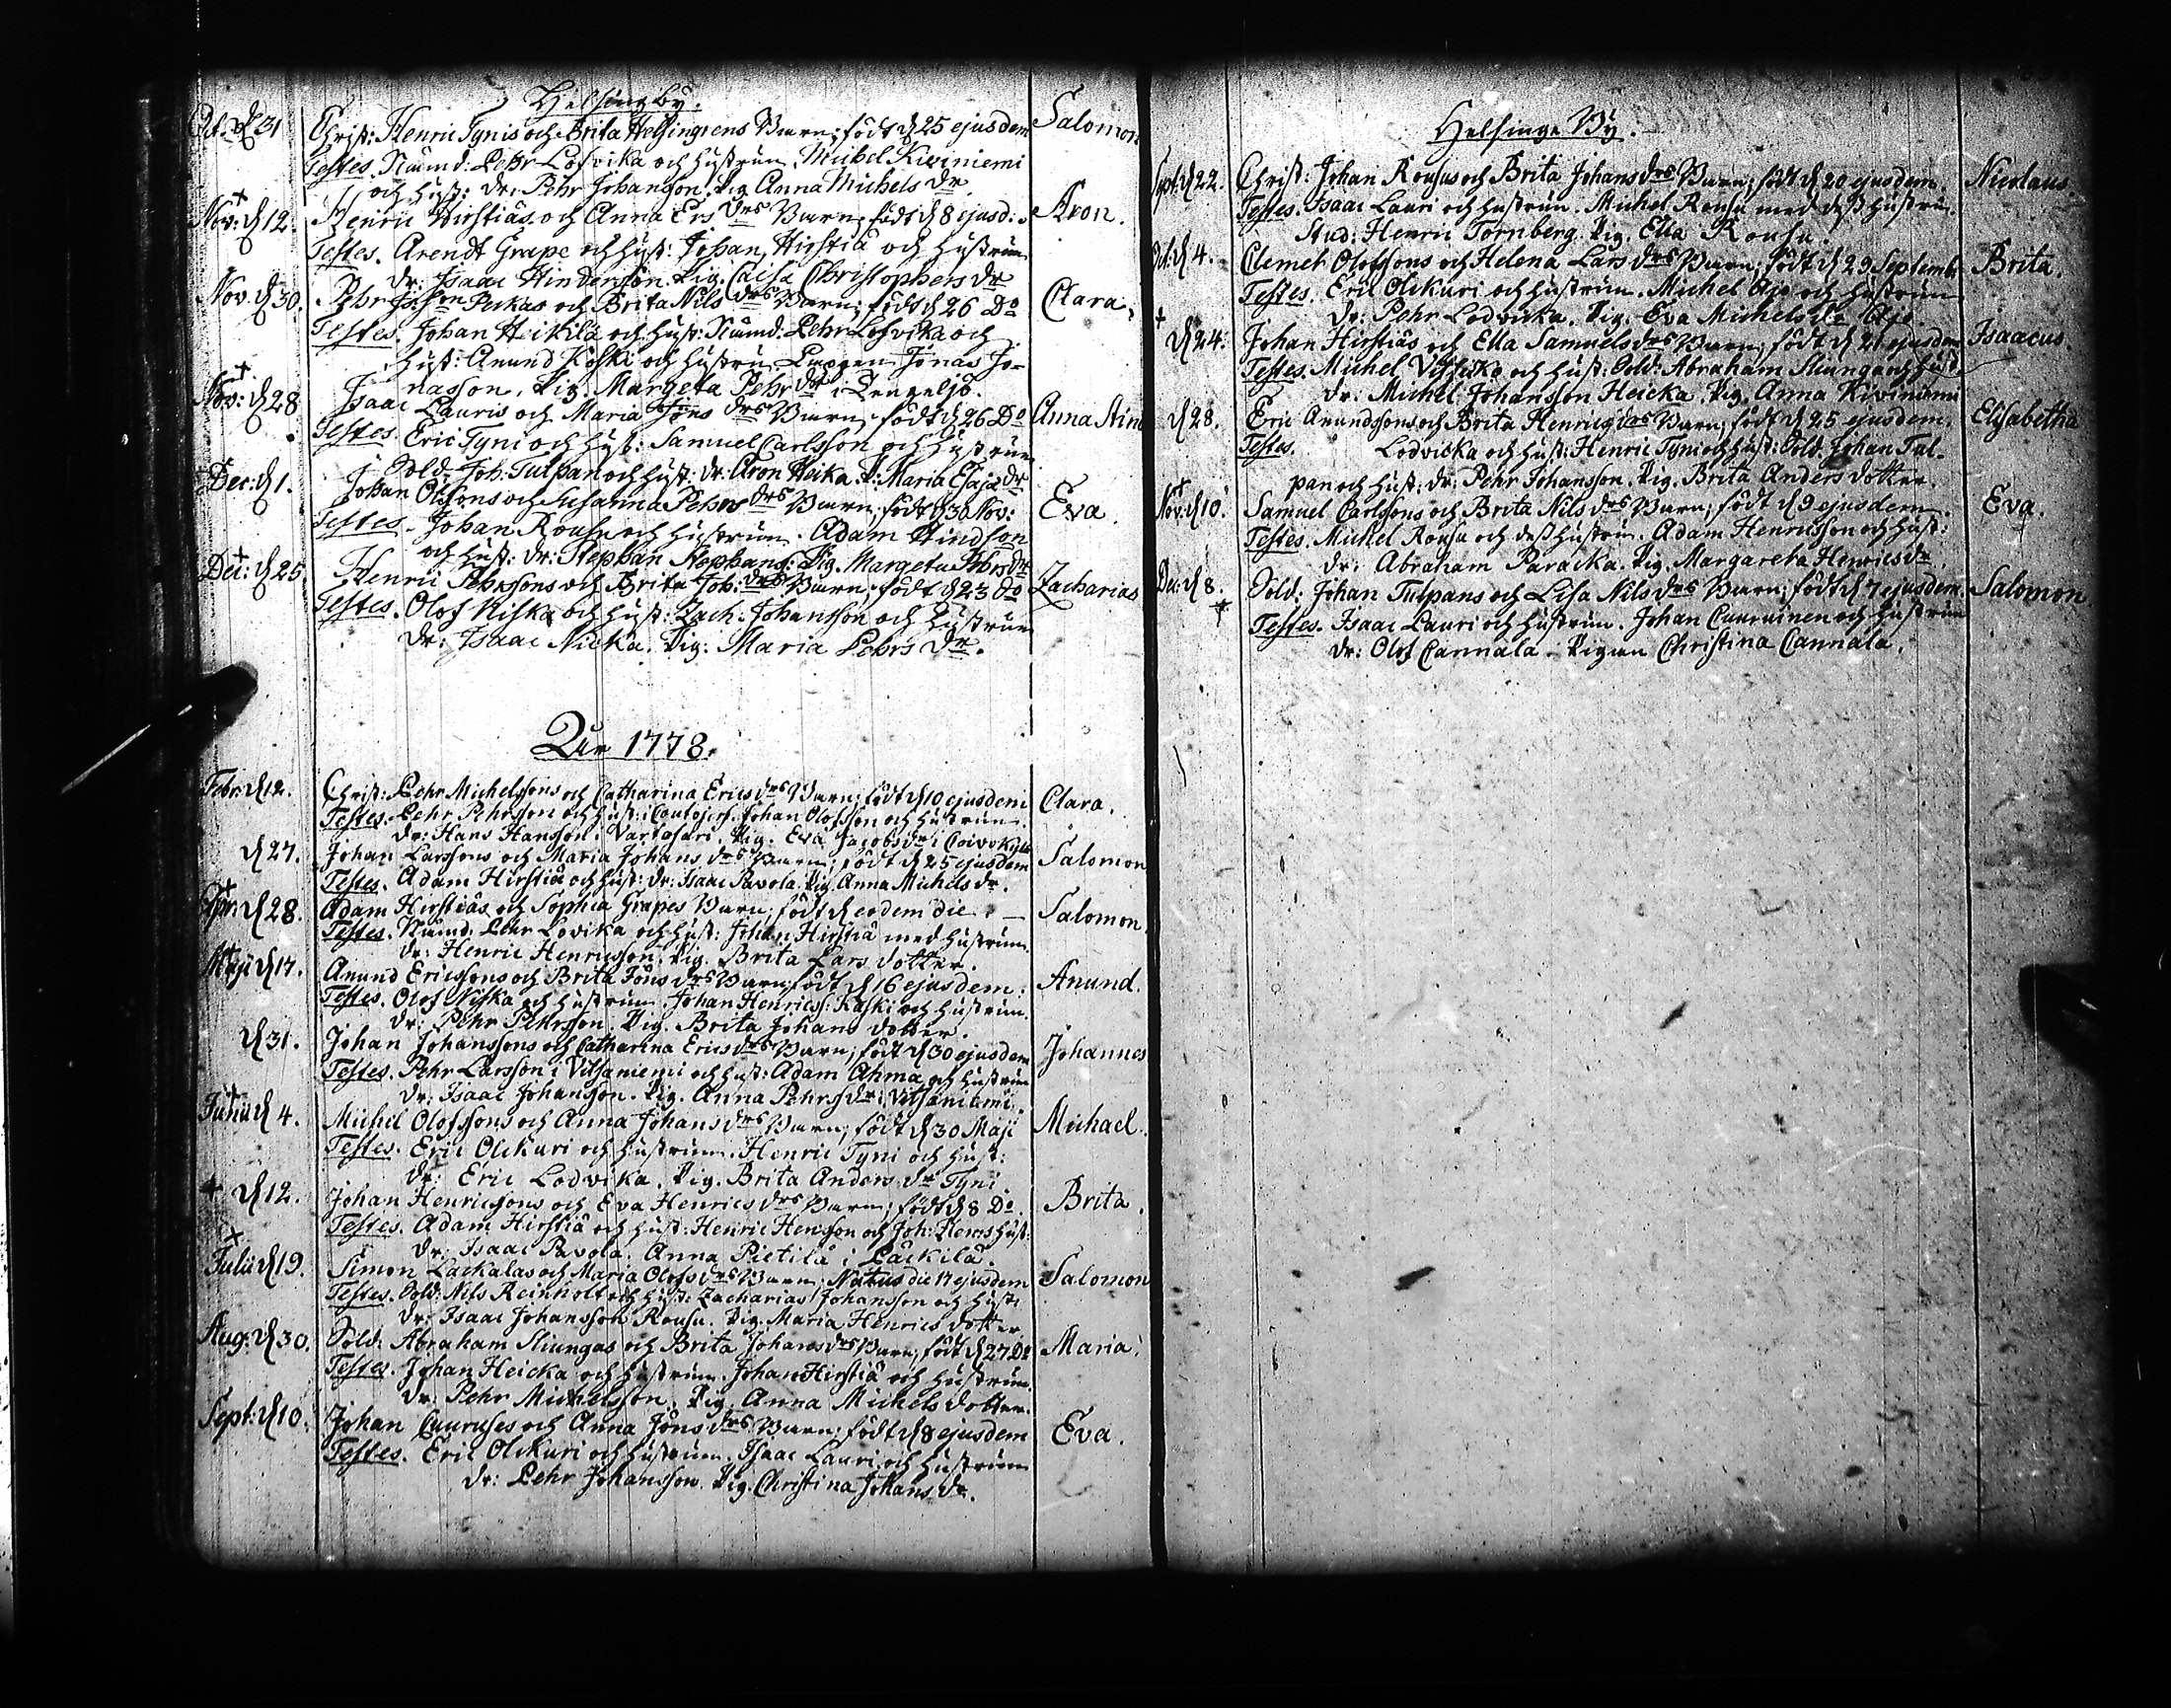 Helsingby.
Oct: d 31 Christ: Henric Tynis och Brita Helsingrens Barn; födt d 25 ejusdem Salomon
Testes. Nämnd. Pehr Lofvika och hustrun, Michel Kiviniemi
och hust: dr: Pehr Johansson. Pig. Anna Michels dr
Nov: d 12. Henric Hirstiäs och Anna Ers drs Barn; födt d 8 ejusd. Aron.
Testes. Arendt Grape och hust: Johan Hirstiä och hustrun
dr: Isaac Hindersson. Pig. Caisa Christophers dr
Nov. d 30. Pehr Perkas och Brita Nils drs Barn; födt d 26 Do Clara.
Testes. Johan Heikilä och hust: Nämd. Pehr Lofvika och
hust: Anund Koski och hustru Jonas Jo-
nasson, Pig. Margeta Pehrs dr i Lengelsö.
Nov: d 28 Isaac Lauris och Maria Jöns drs Barn, födt d 26 Do Anna Stina
Testes Eric Tyni och hust: Samuel Carlsson och hustrun
Sold. Joh: Tulpan och hust. dr: Aron Heika. P: Maria Esaiæ dr
Dec: d 1. Johan Olofsons och Susanna Pehrs drs Barn, födt d 30 Nov: Eva.
Testes. Johan Rousu och hustrun. Adam Hindson
och hust: dr: Stephan Stephans: Pig. Margeta Pehrs dr
Dec: d 25 Henric Pehrssons och Brita Joh: drs Barn, födt d 23 do Zacharias
Testes. Olof Niska och hust: Zach. Johansson och hustrun
dr: Isaac Nicka. Pig: Maria Pehrs dr.
1778.
Febr: d 12. Christ: Pehr Michelssons och Catharina Erics drs Barn; födt d 10 ejusdem Clara.
Testes. Pehr Pehrsson och hust: i Johan Olofsson och hustrun.
dr: Hans Hansson. Pig. Eva Jacobs dr i Coivokylä
d 27. Johan Larssons och Maria Johans drs Barn; födt d 25 ejusdem Salomon
Testes. Adam Hirstiä och hust: dr: Isaac Pavola. Pig. Anna Michels dr.
Apr: d 28. Adam Hirstiäs och Sophia Grapes Barn; födt d eodem die. Salomon.
Testes. Nämd. Pehr Lovika och hust: Johan Hirstiä med hustrun.
dr: Henric Henricsson. Pig. Brita Lars dotter.
Maji d 17. Anund Ericssons och Brita Jöns drs Barn, födt d 16 ejusdem: Anund.
Testes. Olof Niska och hustrun. Johan Henricss: Kaski och hustrun.
dr: Pehr Pehrsson. Pig. Brita Johans dotter.
d 31. Johan Johanssons och Catharina Erics drs Barn; födt d 30 ejusdem Johannes
Testes. Pehr Larsson i Vitsaniemi och hust: Adam Ahma och hustrun
dr: Isaac Johansson. Pig. Anna Pehrs dr: i Vitsaniemi.
Junii d 4. Michel Olofssons och Anna Johans drs Barn; födt d 30 Maji Michael.
Testes. Eric Olckuri och hustrun. Henric Tyni och hust:
dr: Eric Lodvika. Pig. Brita Anders dr Tyni.
d 12. Johan Henricssons och Eva Henrics drs Barn; födt d 8 Do. Brita.
Testes. Adam Hirstiä och hust: Henric Hensson och Joh: hust:
dr: Isaac Pavola. Anna Pietilä i Päckilä.
Julii d 19. Simon Lackalas och Maria Olofs drs Barn. Natus die 17 ejusdem Salomon
Testes. Sold: Nils Reinholt och hust: Zacharias Johansson och hust:
dr: Isaac Johansson Rousu. Pig. Maria Henrics dotter
Aug: d 30. Sold: Abraham Sliungas och Brita Johans drs Barn; födt d 27 Do Maria.
Testes. Johan Heicka och hustrun. Johan Hirstiä och hustrun.
dr: Pehr Michelsson. Pig. Anna Michels dotter.
Sept: d 10. Johan och Anna Jöns drs Barn; födt d 8 ejusdem Eva.
Testes. Eric Olckuri och hustrun. Isaac Lauri och hustrun
dr: Pehr Johansson. Pig. Christina Johans dr.
Helsinge By.
Sept: d 22. Christ: Johan Rousus och Brita Johans drs Barn; födt d 20 ejusdem. Nicolaus.
Testes. Isaac Lauri och hustrun. Michel Rousu med dess hustru.
Stud: Henric Törnberg. Pig. Ella Rousu.
Oct: d 4. Clemet Olofssons och Helena Lars drs Barn; födt d 29 Septemb: Brita.
Testes. Eric Olckuri och hustrun. Michel Ojo och hustrun
dr: Pehr Lodvicka. Pig. Eva Michels dr Ojo.
d 24. Johan Hirstiäs och Ella Samuels drs Barn; födt d 21 ejusdem Isaacus
Testes. Michel och hust: Sold: Abraham Sliunga och hust.
dr: Michel Johansson Heicka. Pig. Anna Kiviniemi
d 28. Eric Anundssons och Brita Henrics drs Barn; födt d 25 ejusdem. Elisabetha
Testes. Lodvicka och hust: Henric Tyni och hust: Sold. Johan Tul-
pan och hust: dr: Pehr Johansson. Pig. Brita Anders dotter.
Nov: d 10. Samuel Carlssons och Brita Nils drs Barn; födt d 9 ejusdem. Eva.
Testes. Michel Rousu och dess hustru. Adam Henricsson och hust:
dr: Abraham Paracka. Pig. Margareta Henrics dr.
Dec: d 8. Sold: Johan Tulpans och Lisa Nils drs Barn; födt d 7 ejusdem. Salomon.
Testes. Isaac Lauri och hustrun. Johan och hustrun
dr: Olof Cannala. Pigan Christina Cannala.